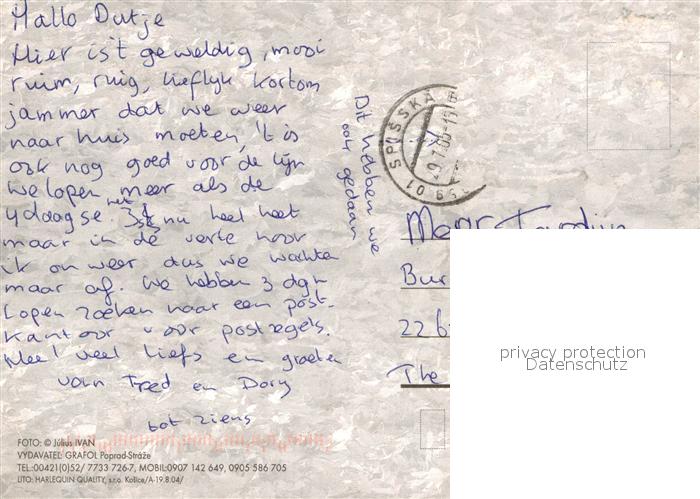 Hallo Dutje
Hier is't geweldig, mooi
ruim, ruig, lieflyk kortom
jammer dat we weer
naar huis moeten, 't is
ook nog goed voor de lijn
we lopen meer als de
4daagse het is nu heel heet
maar in de verte hoor
ik onweer dus we wachten
maar af. We hebben 3 dgn
lopen zoeken naar een post-
kantoor voor postzegels.
Heel veel liefs en groeten
van Fred en Dory
tot ziens
Dit hebben we
ook gedaan
SPIŠSKÁ
Bur
The
privacy protection
Datenschutz
FOTO: © Július IVAN
VYDAVATEĽ: GRAFOL Poprad-Stráže
TEL:00421(0)52/ 7733 726-7, MOBIL:0907 142 649, 0905 586 705
LITO: HARLEQUIN QUALITY, s.r.o. Košice/A-19.8.04/